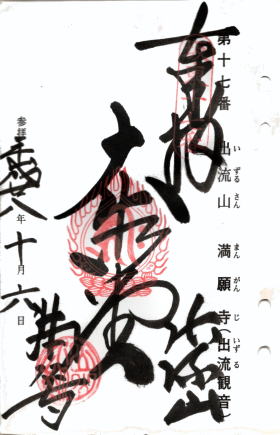 第十七番 出流山 満願寺(出流観音)
いずるさん まんがんじ いずる
奉拝
大悲殿
出流山
満願寺
参拝 平成廿八年十月六日